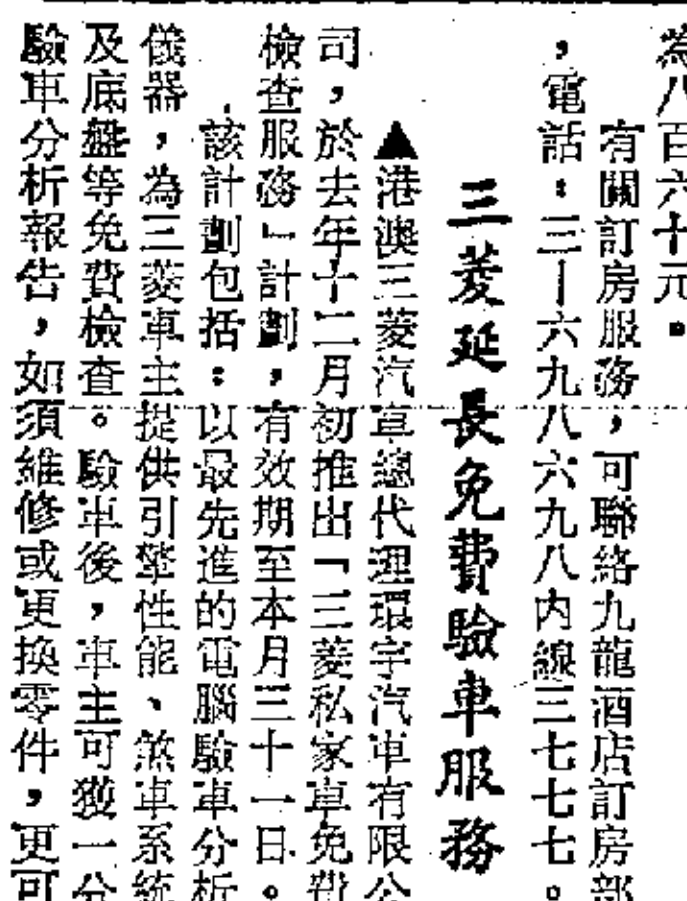 為八百六十元。
有關訂房服務，可聯絡九龍酒店訂房部
，電話：三—六九八六九八內線三七七七。
三菱延長免費驗車服務
▲港澳三菱汽車總代理環宇汽車有限公
司，於去年十二月初推出「三菱私家車免費
檢查服務」計劃，有效期至本月三十一日。
該計劃包括：以最先進的電腦驗車分析
儀器，為三菱車主提供引擎性能、煞車系統
及底盤等免費檢查。驗車後，車主可獲一分
驗車分析報告，如須維修或更換零件，更可